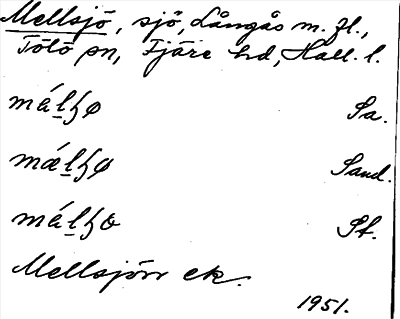 Mellsjö, sjö, Långås m. fl.,
Tölö sn, Fjäre hd, Hall. l.
mǽl̲ɧø Sa.
mǽl̲ɧø Sand.
mǽl̲ɧɵ St.
Mellsjörr ek.
1951.